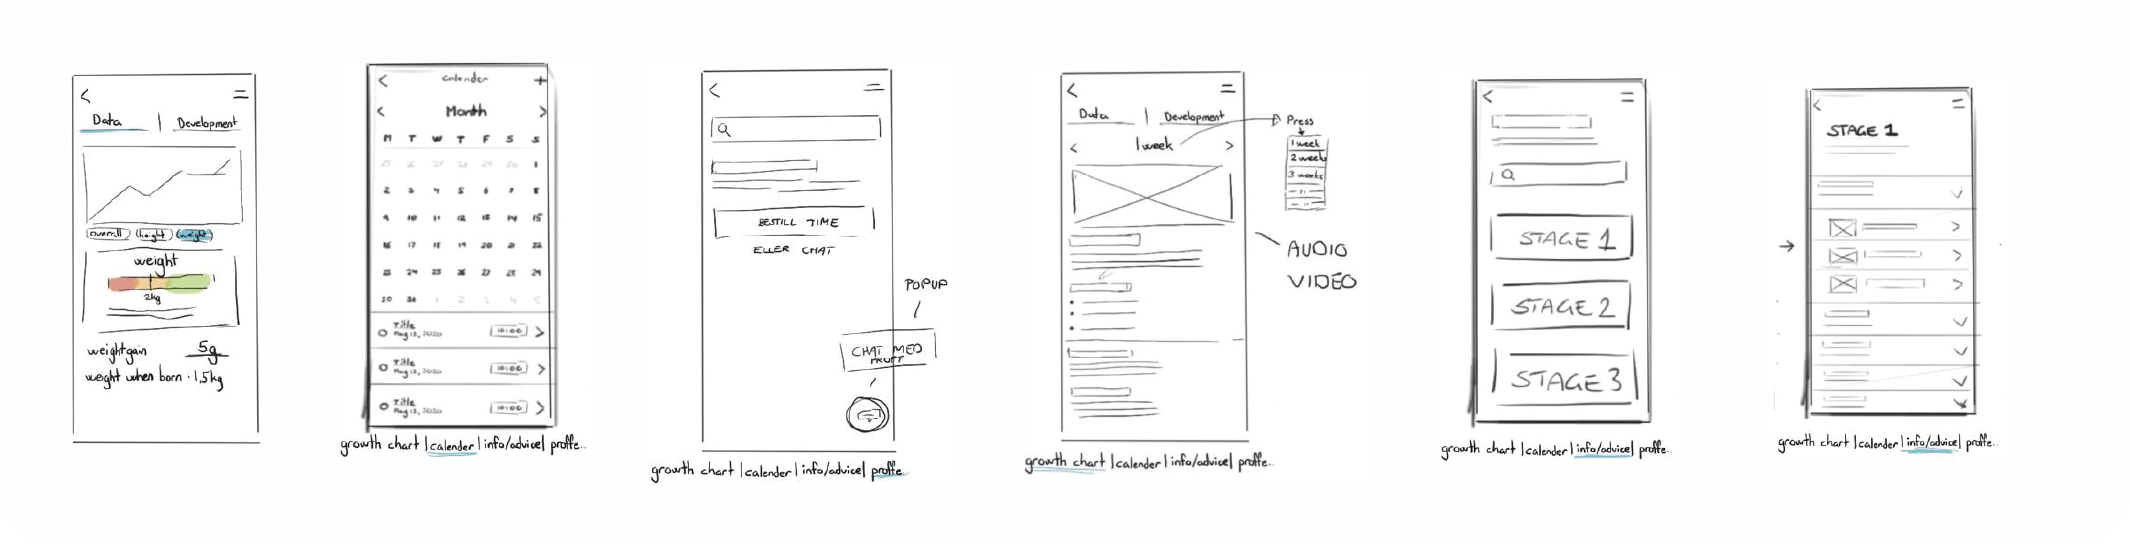 Data | Development
overall height weight
weight
2kg
weightgain 5g
weight when born : 1,5kg
< Calender +
< Month >
M T W T F S S
1
2 3 4 5 6 7 8
9 10 11 12 13 14 15
16 17 18 19 20 21 22
23 24 25 26 27 28 29
30
1 2 3 4 5
Title
May 13, 2020 10:00 >
Title
May 13, 2020 10:00 >
Title
May 13, 2020 10:00 >
growth chart | calender | info/advice | proffe..
BESTILL TIME
ELLER CHAT
POPUP
CHAT MED
growth chart | calender | info/advice | proffe..
Data | Development
< 1 week >
Press
1 week
2 week
3 weeks
AUDIO
VIDEO
growth chart | calender | info/advice | proffe..
STAGE 1
STAGE 2
STAGE 3
growth chart | calender | info/advice | proffe..
STAGE 1
growth chart | calender | info/advice | proffe..